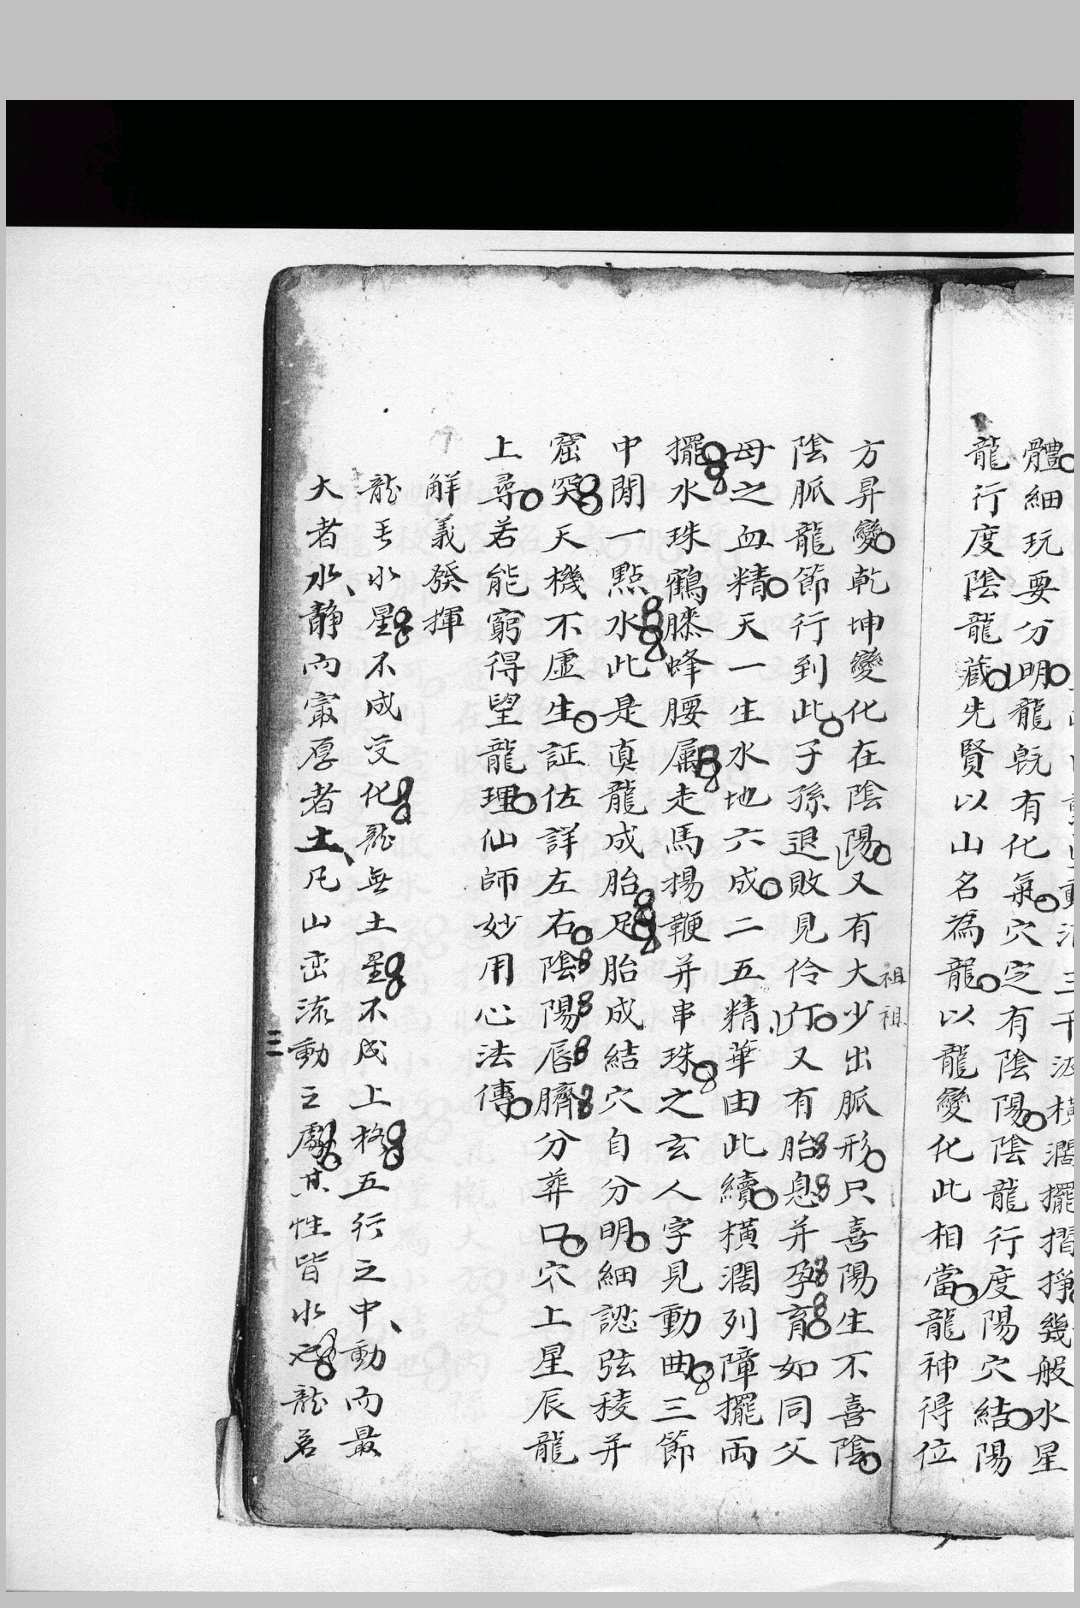 體細玩要分明龍既有化氣穴定有陰陽陰龍行度陽穴結陽
龍行度陰龍藏先賢以山名為龍以龍變化此相當龍神得位
方昇變乾坤變化在陰陽又有大少出脈形只喜陽生不喜陰
祖祖
陰脈龍節行到此子孫退敗見伶仃又有胎息并孕育如同父
母之血精天一生水地六成二五精華由此續橫濶列障擺両
擺水珠鶴膝蜂腰属走馬揚鞭并串珠之玄人字見動曲三節
中間一點水此是真龍成胎足胎成結穴自分明細認弦稜并
窟突天機不虛生証佐詳左右陰陽唇臍分葬口穴上星辰龍
上尋若能窮得望龍理仙師妙用心法傳
解義發揮
龍無水星不成变化龍無土星不成上格五行之中動而最
大者水静而最厚者土凡山巒流動之處其性皆水也龍若
三